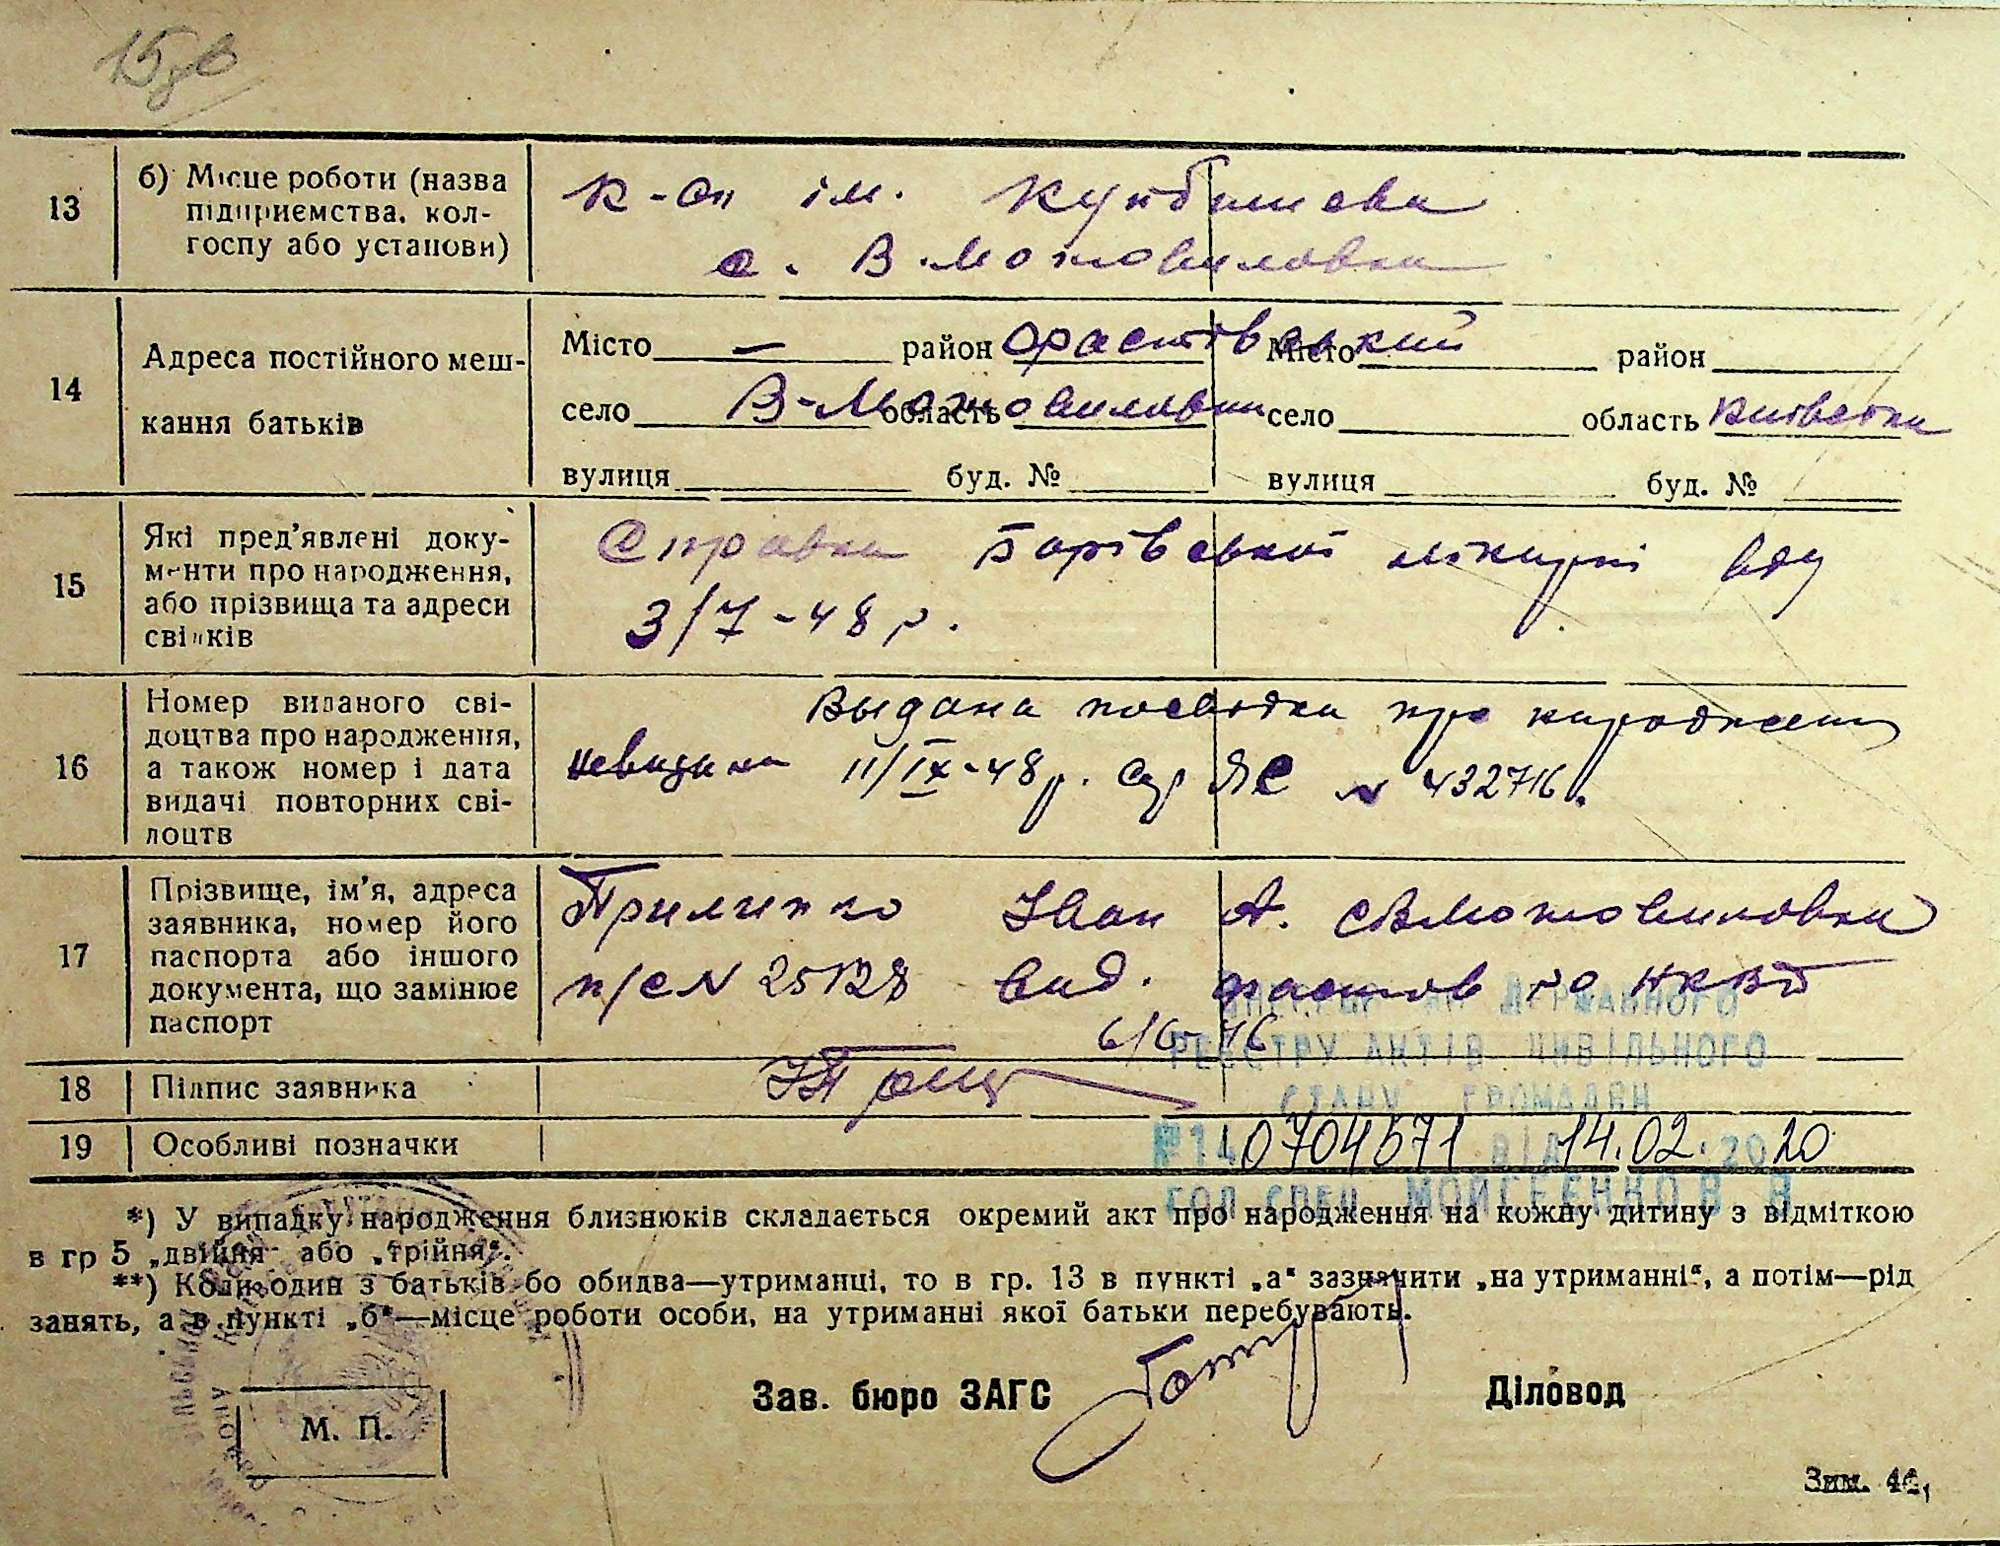 13
б) Місце роботи (назва
підприємства, кол-
госпу або установи)
к-сп ім. Куйбишева
с. В.Мотовиловка
14
Адреса постійного меш-
кання батьків
Місто — район Фастівський Місто район
село В-Мотовиловка область село область Київська
вулиця буд. № вулиця буд. №
15
Які пред'явлені доку-
менти про народження,
або прізвища та адреси
свідків
Справка Борівської лікарні від
3/7-48 р.
16
Номер виданого сві-
доцтва про народження,
а також номер і дата
видачі повторних сві-
доцтв
Выдана посвідка про народження
11/IX-48р. сер ЯС № 432716.
17
Прізвище, ім'я, адреса
заявника, номер його
паспорта або іншого
документа, що замінює
паспорт
Іван А. с В Мотовиловка
п/с № 25128 вид. Фастов РО НКВД
6/6-46
18 Підпис заявника
19 Особливі позначки
ДЕРЖАВНОГО
РЕЄСТРУ АКТІВ ЦИВІЛЬНОГО
СТАНУ ГРОМАДЯН
№ 140704571 ВІД 14.02.2020
ГОЛ.СПЕЦ. МОЙСЕЄНКО В В
*) У випадку народження близнюків складається окремий акт про народження на кожну дитину з відміткою
в гр 5 „двійня" або „трійня".
**) Коли один з батьків бо обидва—утриманці, то в гр. 13 в пункті „а" зазначити „на утриманні", а потім—рід
занять, а в пункті „б"—місце роботи особи, на утриманні якої батьки перебувають.
Зав. бюро ЗАГС Діловод
М. П.